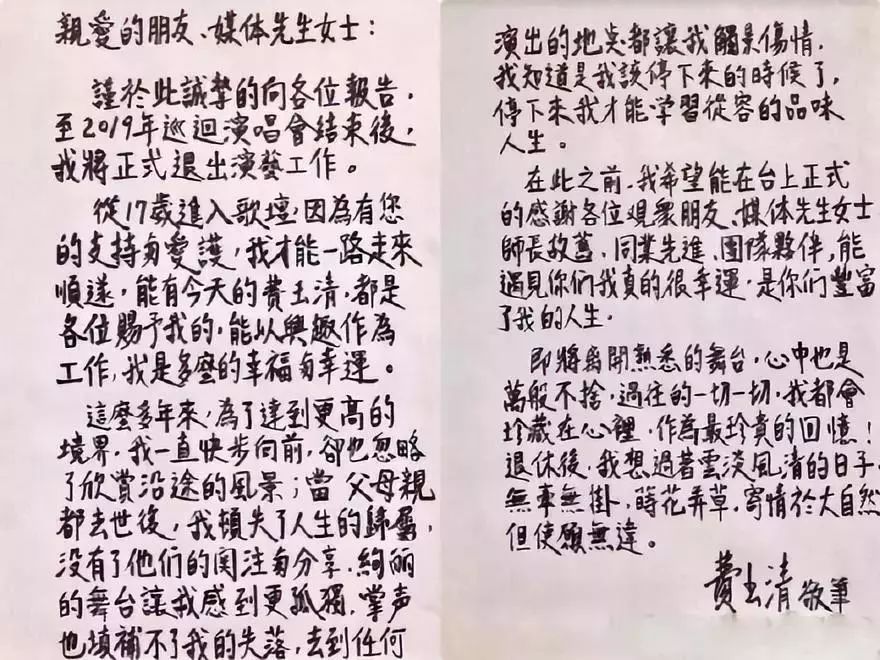 親愛的朋友、媒体先生女士：
謹於此誠摯的向各位報告，
至2019年巡迴演唱會結束後，
我將正式退出演藝工作。
從17歲進入歌壇，因為有您
的支持與愛護，我才能一路走來
順遂，能有今天的費玉清，都是
各位賜予我的，能以興趣作為
工作，我是多麼的幸福與幸運。
這麼多年來，為了達到更高的
境界，我一直快步向前，卻也忽略
了欣賞沿途的風景；當父母親
都去世後，我頓失了人生的歸屬，
没有了他們的関注與分享，絢丽
的舞台讓我感到更孤獨，掌声
也填補不了我的失落，去到任何
演出的地点都讓我觸景傷情，
我知道是我該停下來的時候了，
停下來我才能学習從容的品味
人生。
在此之前，我希望能在台上正式
的感謝各位观眾朋友、媒体先生女士
師長故舊、同業先進、團隊夥伴，能
遇見你們我真的很幸運，是你們豐富
了我的人生，
即將离開熟悉的舞台，心中也是
萬般不捨，過往的一切一切，我都會
珍藏在心裡，作為最珍貴的回憶！
退休後，我想過著雲淡風清的日子，
無牽無掛，蒔花弄草，寄情於大自然
但使願無違。
費玉清敬筆